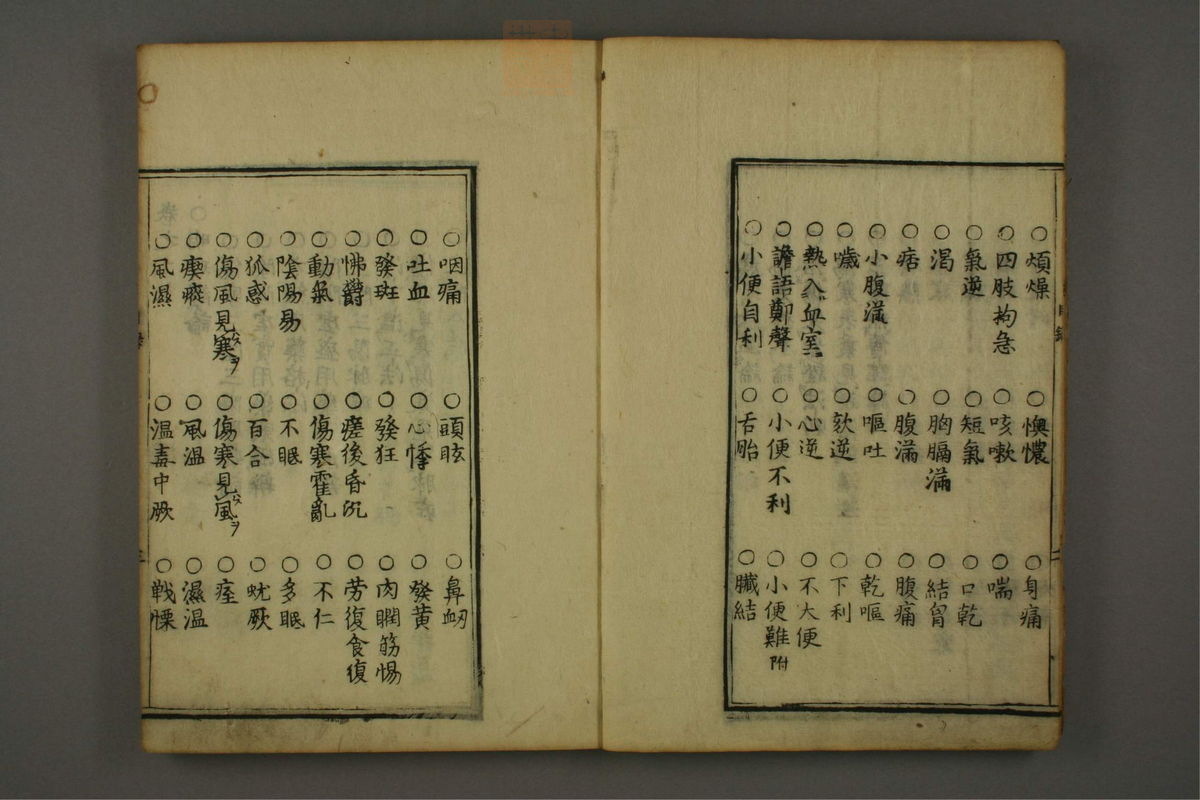 ○煩燥 ○懊憹 ○身痛
○四肢拘急 ○咳嗽 ○喘
○氣逆 ○短氣 ○口乾
○渴 ○胸膈滿 ○結胷
○痞 ○腹滿 ○腹痛
○小腹滿 ○嘔吐 ○乾嘔
○噦 ○欬逆 ○下利
○熱入血室 ○心逆 ○不大便
○譫語鄭聲 ○小便不利 ○小便難附
○小便自利 ○舌胎 ○臓結
○咽痛 ○頭眩 ○鼻衂
○吐血 ○心悸 ○發黄
○發斑 ○發狂 ○肉瞤筋惕
○怫欝 ○瘥後昏沉 ○劳復食復
○動氣 ○傷寒霍亂 ○不仁
○陰陽易 ○不眠 ○多眠
○狐惑 ○百合 ○蚘厥
○傷風見寒 ○傷寒見風 ○痓
○瘈瘲 ○風温 ○濕温
○風濕 ○温毒中厥 ○戦慄